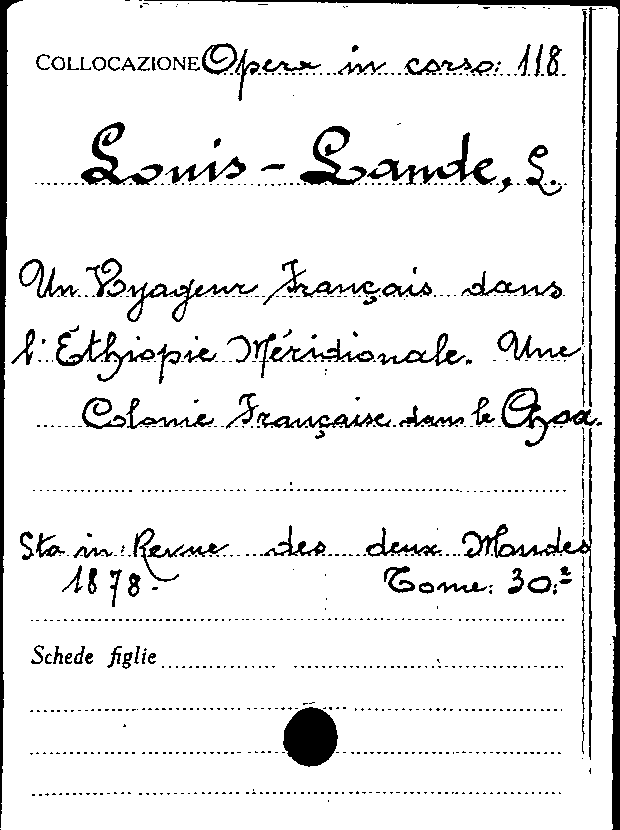 COLLOCAZIONE Opera in corso: 118
Louis-Lande, L.
Un Voyageur Français dans
l'Éthiopie Méridionale. Une
Colonie Française dans le Choa.
Sta in: Revue des deux Mondes
1878. Tome: 30.º
Schede figlie